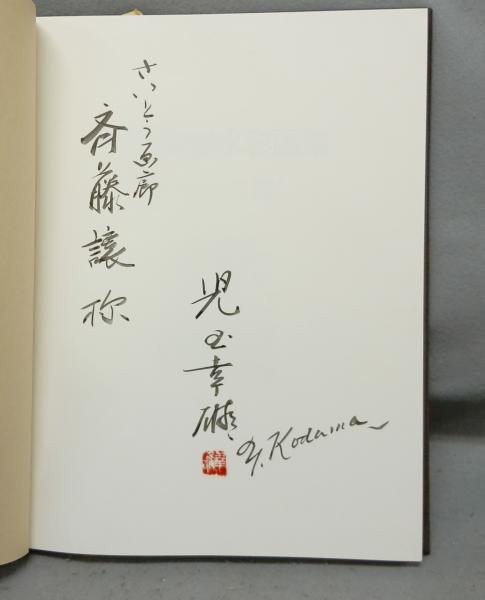 さいとう画廊
斉藤譲様
児玉幸雄
Y. Kodama